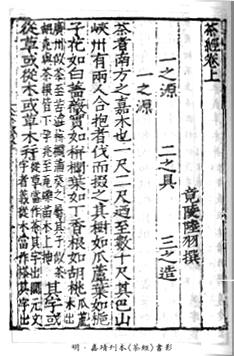 茶經卷上
竟陵陸羽撰
一之源 二之具 三之造
一之源
茶者南方之嘉木也一尺二尺迺至數十尺其巴山
峽州有兩人合抱者伐而掇之其樹如瓜蘆葉如梔
子花如白薔薇實如栟櫚葉如丁香根如胡桃 瓜蘆木出
廣州似茶至苦澀栟櫚蒲葵之屬其子似茶
胡桃與茶根皆下孕兆至瓦礫苗木上抽 其字或
從草或從木或草木并 從草當作茶其字出開元文
字音義從木當作 其字出
明·嘉靖刊本《茶經》書影